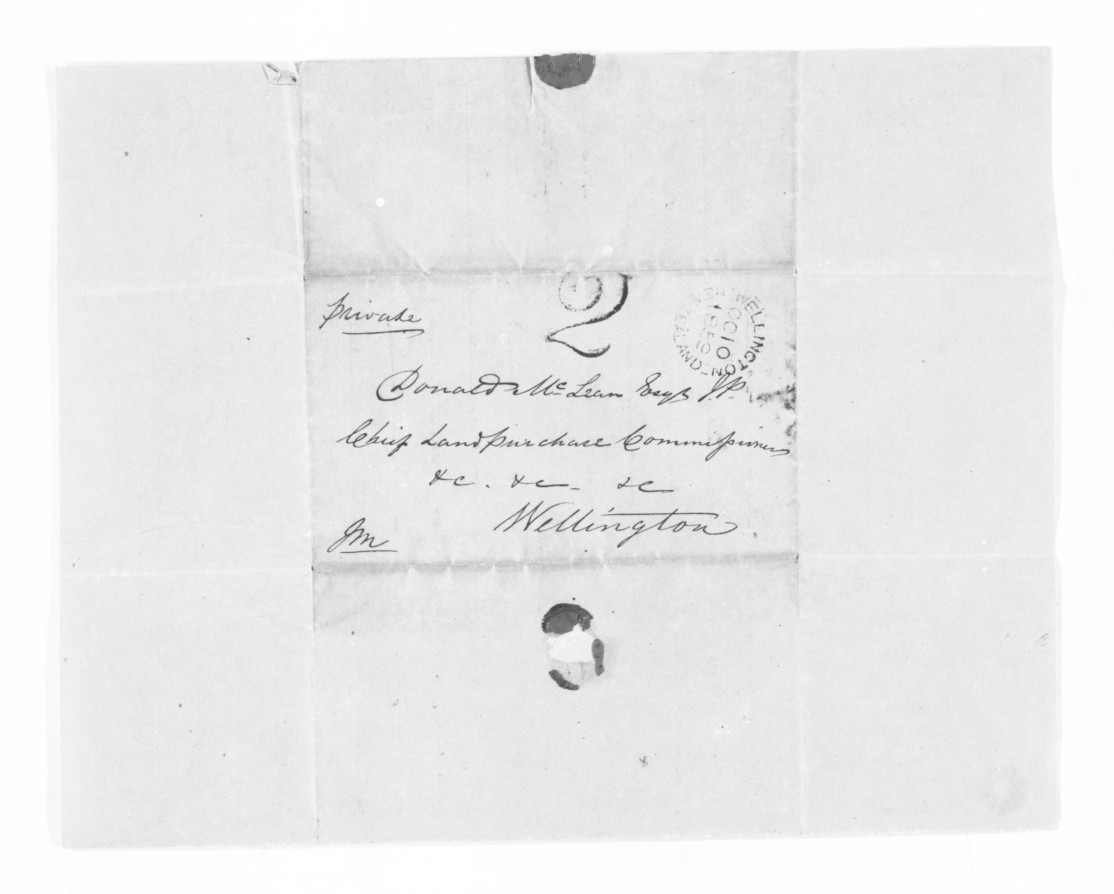 private
2
WELLINGTON
NEW ZEALAND
OC 10
1859
Donald McLean Esqr J.P.
Chief Land purchase Commissioner
&c. &c - &c
Wellington